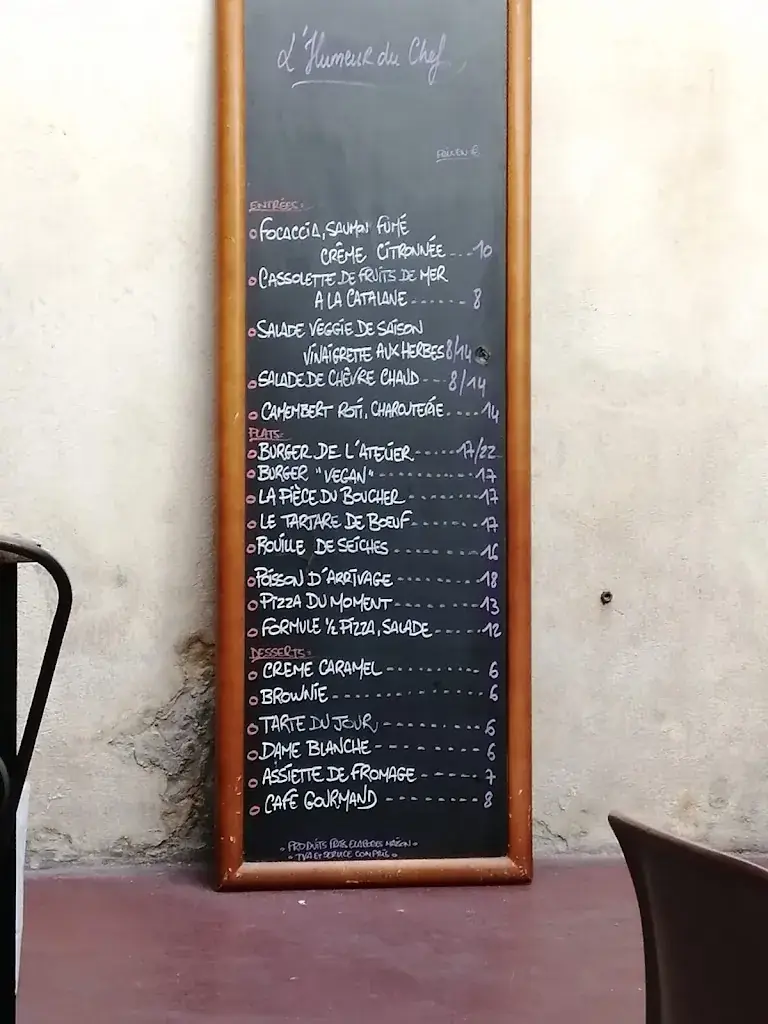 L'Humeur du Chef
ENTRÉES:
FOCACCIA, SAUMON FUMÉ
CRÊME CITRONNÉE ---10
CASSOLETTE DE FRUITS DE MER
A LA CATALANE ------ 8
SALADE VEGGIE DE SAISON
VINAIGRETTE AUX HERBES 8/14
SALADE DE CHÈVRE CHAUD --- 8/14
CAMEMBERT ROTI, CHARCUTERIE ----14
PLATS:
BURGER DE L'ATELIER -----17/22
BURGER "VEGAN" ---------17
LA PIÈCE DU BOUCHER -------17
LE TARTARE DE BOEUF -------17
ROUILLE DE SEICHES --------16
POISSON D'ARRIVAGE --------18
PIZZA DU MOMENT --------13
FORMULE ½ PIZZA, SALADE -----12
DESSERTS:
CREME CARAMEL ---------- 6
BROWNIE --------------- 6
TARTE DU JOUR ---------- 6
DAME BLANCHE ---------- 6
ASSIETTE DE FROMAGE ------ 7
CAFÉ GOURMAND --------- 8
PRODUITS FRAIS ELABORES MAISON
TVA ET SERVICE COMPRIS